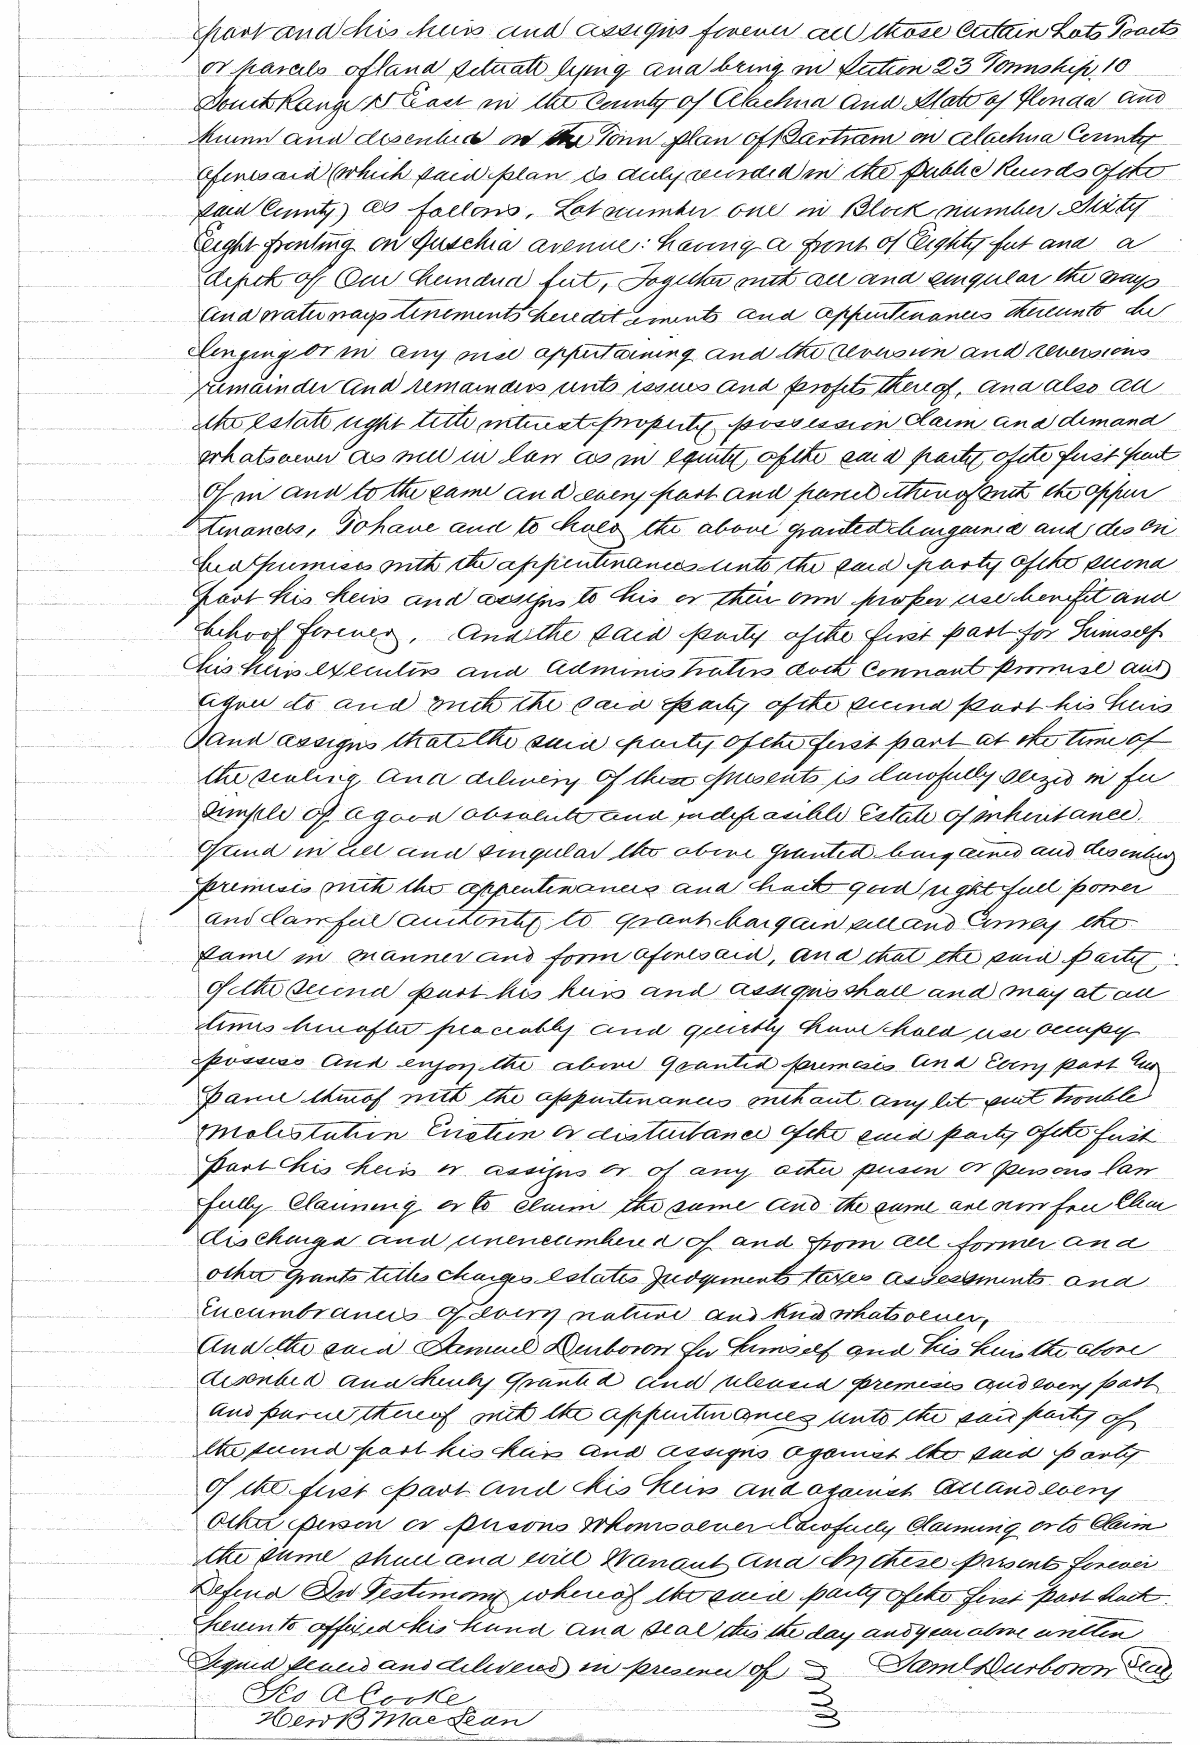 part and his heirs and assigns forever all those Certain Lots Tracts
or parcels of land situate lying and being in Section 23 Township 10
South Range East in the County of Alachua and State of Florida and
Known and described on the Town plan of Bartram on Alachua County
aforesaid (which said plan is duly recorded in the Public Records of the
said County) as follows. Lot number one in Block number Sixty
Eight fronting on Fuschia avenue: having a front of Eighty feet and a
depth of One hundred feet, Together with all and singular the ways
and waterways tenements heredit aments and appurtenances thereunto be
longing or in any wise appertaining and the reversion and reversions
remainder and remainders rents issues and profits thereof, and also all
the estate right title interest property possession claim and demand
whatsoever as well in law as in equity of the said party of the first part
of in and to the same and every part and parcel thereof with the appur
tenances, To have and to hold the above granted bargained and des cri
bed premises with the appurtenances unto the said party of the second
part his heirs and assigns to his or their own proper use benefit and
behoof forever. And the said party of the first part for himself
his heirs executors and Administrators doth Covenant Promise and
agree to and with the said party of the second part his heirs
and assigns that the said party of the first part at the time of
the sealing and delivery of these presents is lawfully seized in fee
simple of a good absolute and indefeasible Estate of inheritance.
of and in all and singular the above granted bargained and described
premises with the appurtenances and hath good right full power
and lawful authority to grant bargain sell and Convey the
same in manner and form aforesaid, and that the said Party
of the second part his heirs and assigns shall and may at all
times hereafter peaceably and quietly have hold use occupy
possess and enjoy the above granted premises and Every part and
parcel thereof with the appurtenances without any let suit trouble
Molestation Eviction or disturbance of the said party of the first
part his heirs or assigns or of any other person or persons law
fully Claiming or to claim the same and the same are now free Clear
discharged and unencumbered of and from all former and
other grants titles charges estates Judgements taxes assessments and
Encumbrances of every nature and Kind whatsoever,
And the said Samuel Durborow for himself and his heirs the above
described and hereby granted and released premises and every part
and parcel thereof with the appurtenances unto the said party of
the second part his heirs and assigns against the said party
of the first part and his heirs and against all and every
other person or persons whomsoever lawfully Claiming or to Claim
the same shall and will Warrant and by these presents forever
Defend In Testimony whereof the said party of the first part hath
hereunto affixed his hand and seal this the day and year above written
Signed sealed and delivered in presence of Saml Durborow Seal
Geo A Cooke
Hew B MacLean